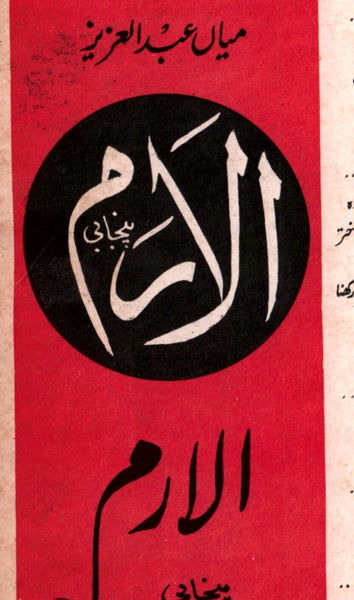 میاں عبد العزیز
الارم
پنجابی
الارم
پنجابی
ختر
رکھنا